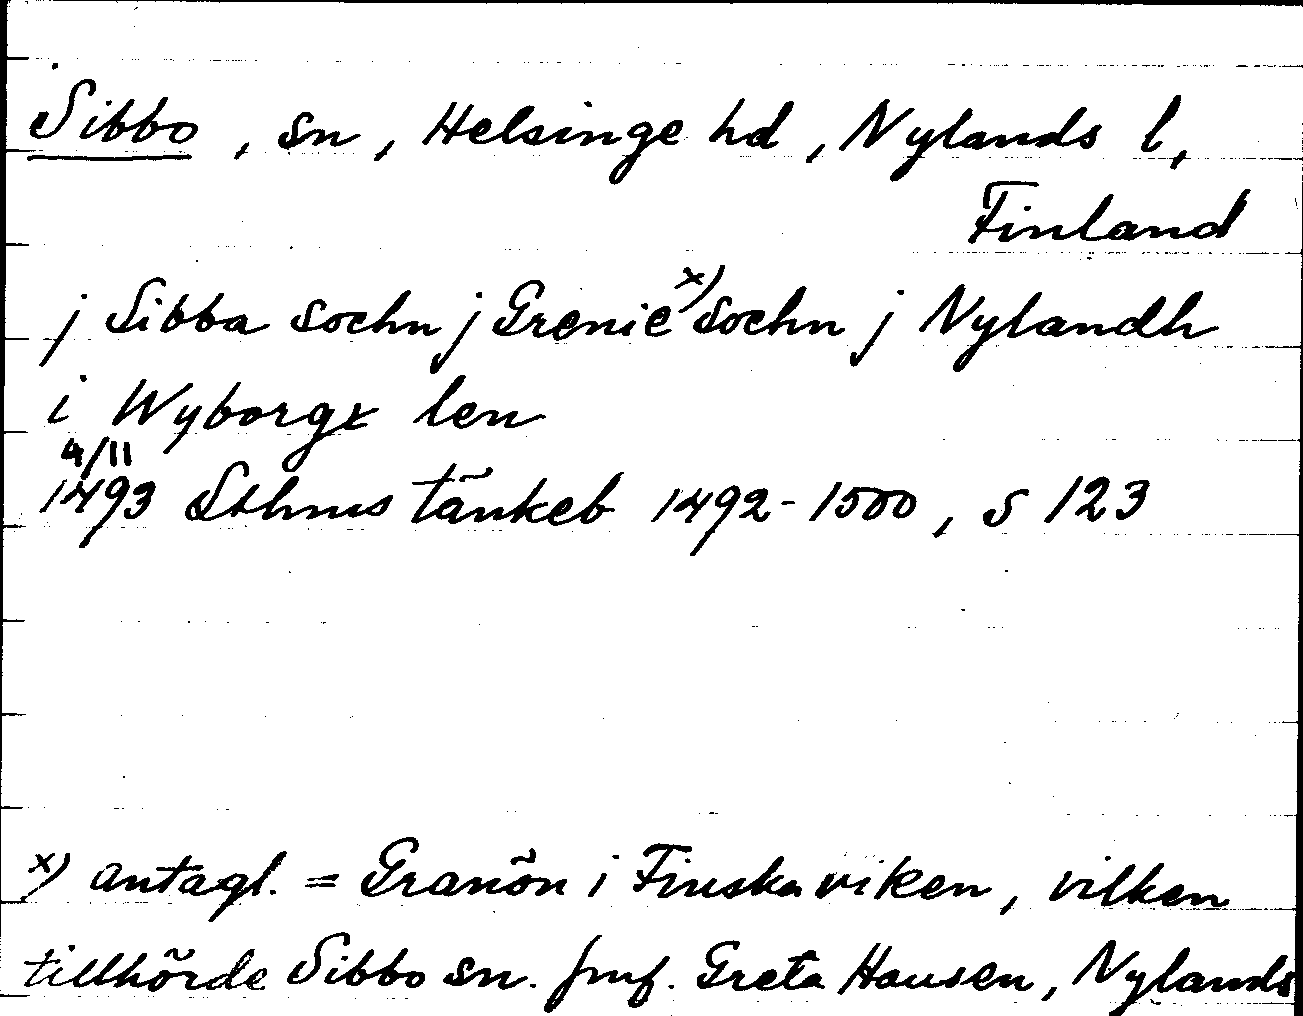 Sibbo, sn, Helsinge hd, Nylands l,
Finland
j Sibba sochn j Grenie x) sochn j Nylandh
i Wyborgx len
4/11
1493 Sthms tänkeb 1492-1500, s 123
x) antagl. = Granön i Finska viken, vilken
tillhörde Sibbo sn. jmf. Greta Hausen, Nylands